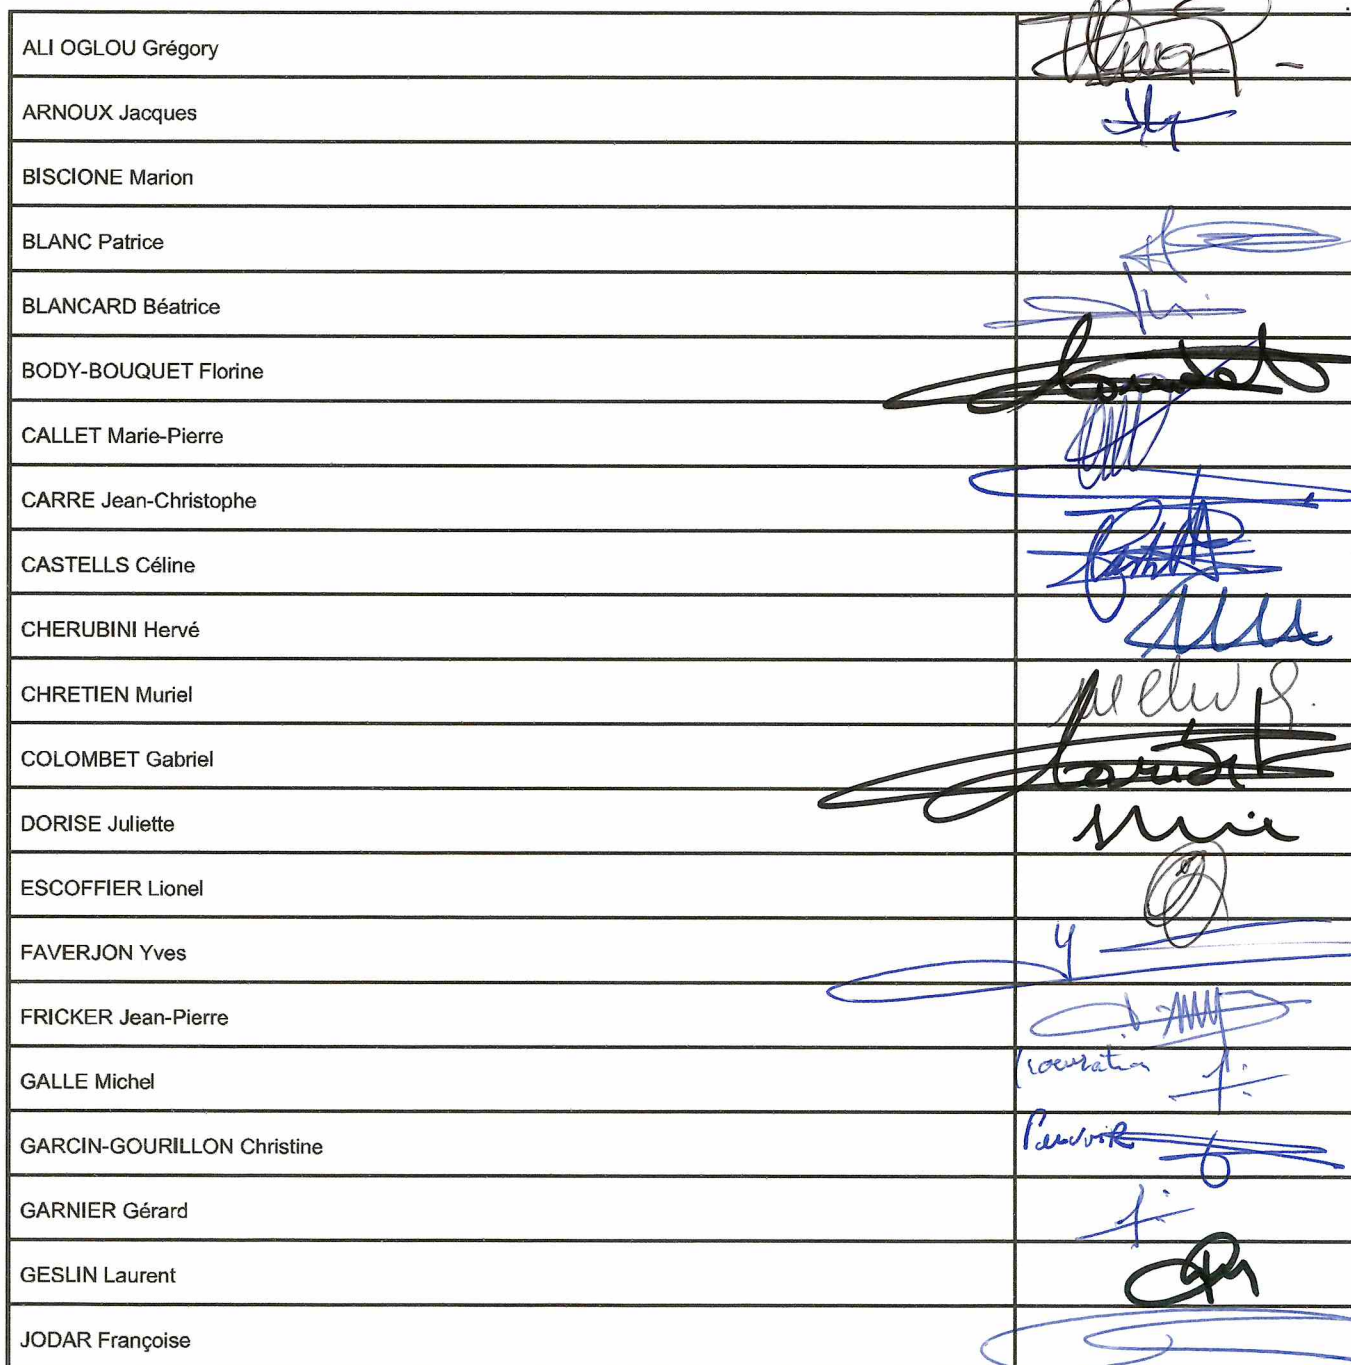 ALI OGLOU Grégory
ARNOUX Jacques
BISCIONE Marion
BLANC Patrice
BLANCARD Béatrice
BODY-BOUQUET Florine
CALLET Marie-Pierre
CARRE Jean-Christophe
CASTELLS Céline
CHERUBINI Hervé
CHRETIEN Muriel
COLOMBET Gabriel
DORISE Juliette
ESCOFFIER Lionel
FAVERJON Yves
FRICKER Jean-Pierre
GALLE Michel procuration
GARCIN-GOURILLON Christine Pouvoir
GARNIER Gérard
GESLIN Laurent
JODAR Françoise